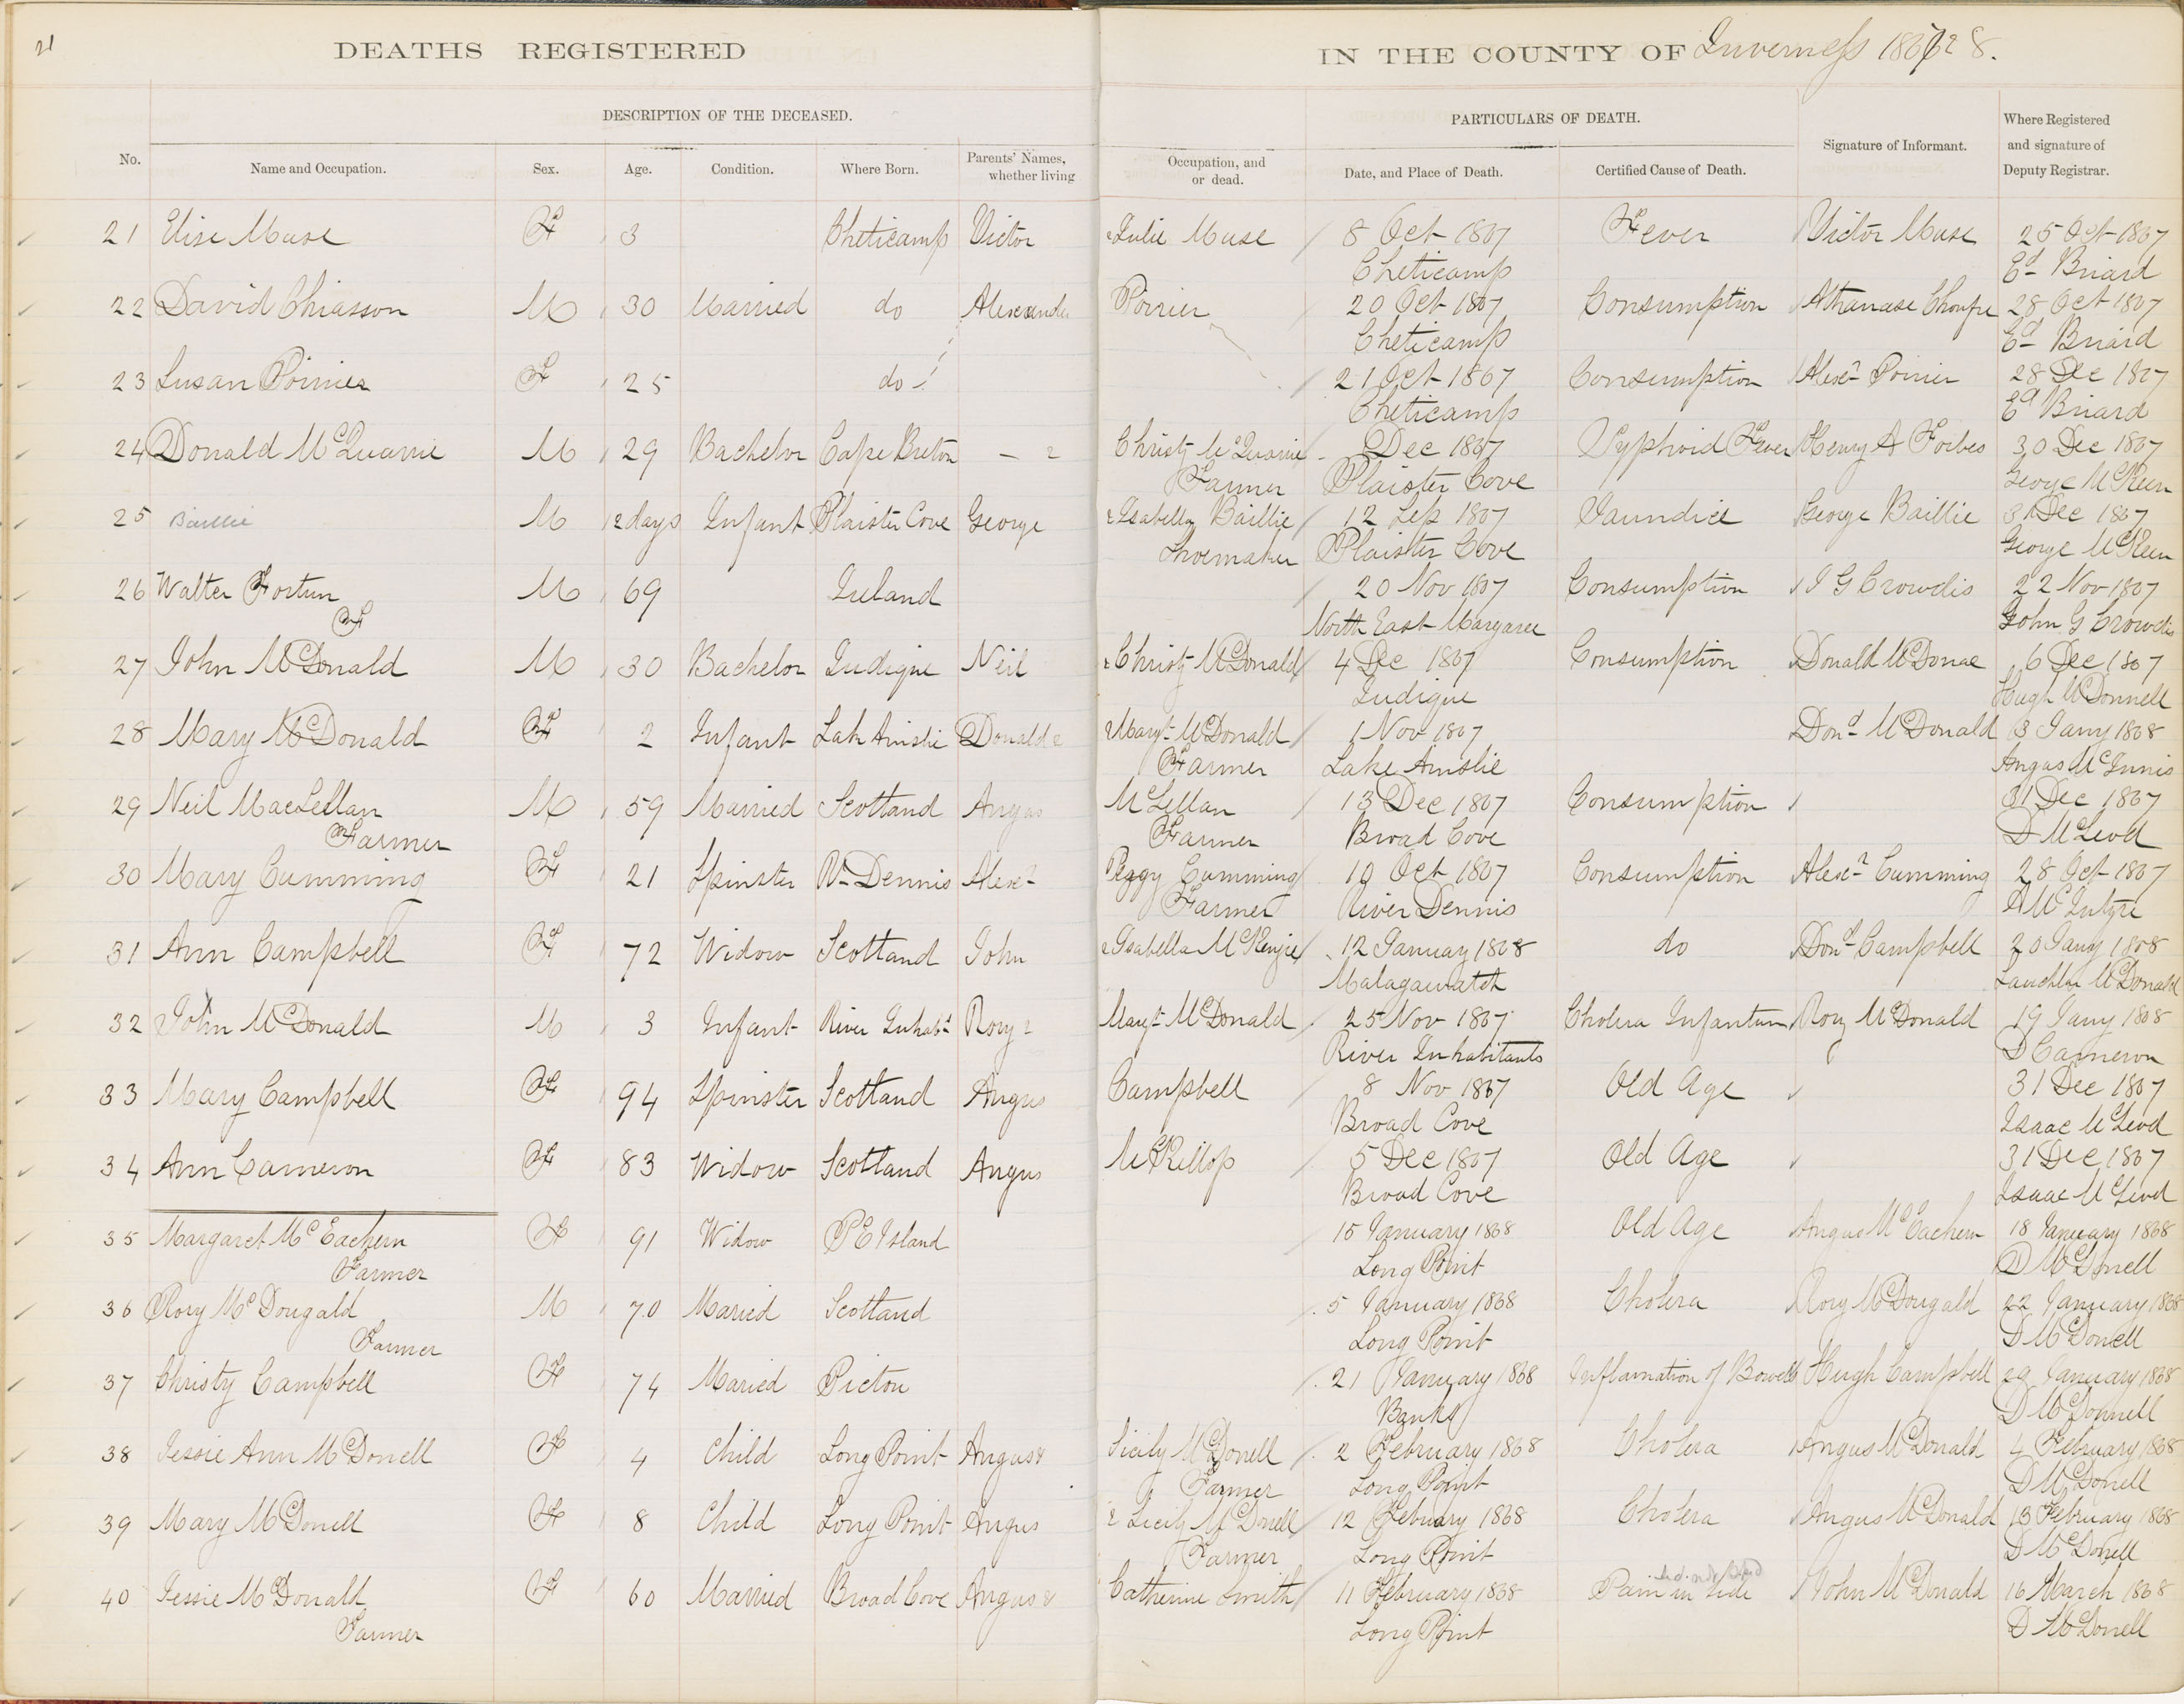 21
DEATHS REGISTERED IN THE COUNTY OF Inverness 1867 & 8.
DESCRIPTION OF THE DECEASED. PARTICULARS OF DEATH.
No. Name and Occupation. Sex. Age. Condition. Where Born. Parents' Names, whether living Occupation, and or dead. Date, and Place of Death. Certified Cause of Death. Signature of Informant. Where Registered and signature of Deputy Registrar.
21 Elise Muse F 3 Cheticamp Victor & Julie Muse 8 Oct 1867 Fever Victor Muse 25 Oct 1867
Cheticamp Ed Briard
22 David Chiasson M 30 Married do Alexander Poirier 20 Oct 1867 Consumption Athanase 28 Oct 1867
Cheticamp Ed Briard
23 Susan Poirier F 25 do 21 Oct 1867 Consumption Alexr Poirier 28 Dec 1867
Cheticamp Ed Briard
24 Donald McQuarrie M 29 Bachelor Cape Breton — & Christy McQuarrie Dec 1867 Typhoid Fever Henry A Forbes 30 Dec 1867
Farmer Plaister Cove George McKeen
25 Baillie M 12 days Infant Plaister Cove George & Isabella Baillie 12 Sep 1867 Jaundice George Baillie 31 Dec 1867
Shoemaker Plaister Cove George McKeen
26 Walter Fortun M 69 Ireland 20 Nov 1867 Consumption J G Crowdis 22 Nov 1867
F North East Margaree John G Crowdis
27 John McDonald M 30 Bachelor Judique Neil & Christy McDonald 4 Dec 1867 Consumption Donald McDonae 6 Dec 1867
Judique Hugh McDonnell
28 Mary McDonald F 2 Infant Lake Ainslie Donald & Margt McDonald 1 Nov 1867 Dond McDonald 3 Jany 1868
Farmer Lake Ainslie Angus McInnis
29 Neil MacLellan M 59 Married Scotland Angus McLellan 13 Dec 1867 Consumption 31 Dec 1867
Farmer Farmer Broad Cove D McLeod
30 Mary Cumming F 21 Spinster Rr Dennis Alexr Peggy Cumming 10 Oct 1867 Consumption Alexr Cumming 28 Oct 1867
Farmer River Dennis A McIntyre
31 Ann Campbell F 72 Widow Scotland John & Isabella McKenzie 12 January 1868 do Dond Campbell 20 Jany 1868
Malagawatch Lauchlin McDonald
32 John McDonald M 3 Infant River Inhabts Rory & Margt McDonald 25 Nov 1867 Cholera Infantum Rory McDonald 19 Jany 1868
River Inhabitants D Cameron
33 Mary Campbell F 94 Spinster Scotland Angus Campbell 8 Nov 1867 Old Age 31 Dec 1867
Broad Cove Isaac McLeod
34 Ann Cameron F 83 Widow Scotland Angus McKillop 5 Dec 1867 Old Age 31 Dec 1867
Broad Cove Isaac McLeod
35 Margaret McEachern F 91 Widow P E Island 15 January 1868 Old Age Angus McEachern 18 January 1868
Farmer Long Point D McDonell
36 Rory McDougald M 70 Maried Scotland 5 January 1868 Cholera Rory McDougald 22 January 1868
Farmer Long Point D McDonell
37 Christy Campbell F 74 Maried Pictou 21 January 1868 Inflamation of Bowels Hugh Campbell 29 January 1868
Banks D McDonnell
38 Jessie Ann McDonell F 4 Child Long Point Angus & Sicily McDonell 2 February 1868 Cholera Angus McDonald 4 February 1868
Farmer Long Point D McDonell
39 Mary McDonell F 8 Child Long Point Angus & Sicily McDonell 12 February 1868 Cholera Angus McDonald 13 February 1868
Farmer Long Point D McDonell
40 Jessie McDonald F 60 Married Broad Cove Angus & Catherine Smith 11 February 1868 Pain in Side John McDonald 16 March 1868
Farmer Long Point D McDonell